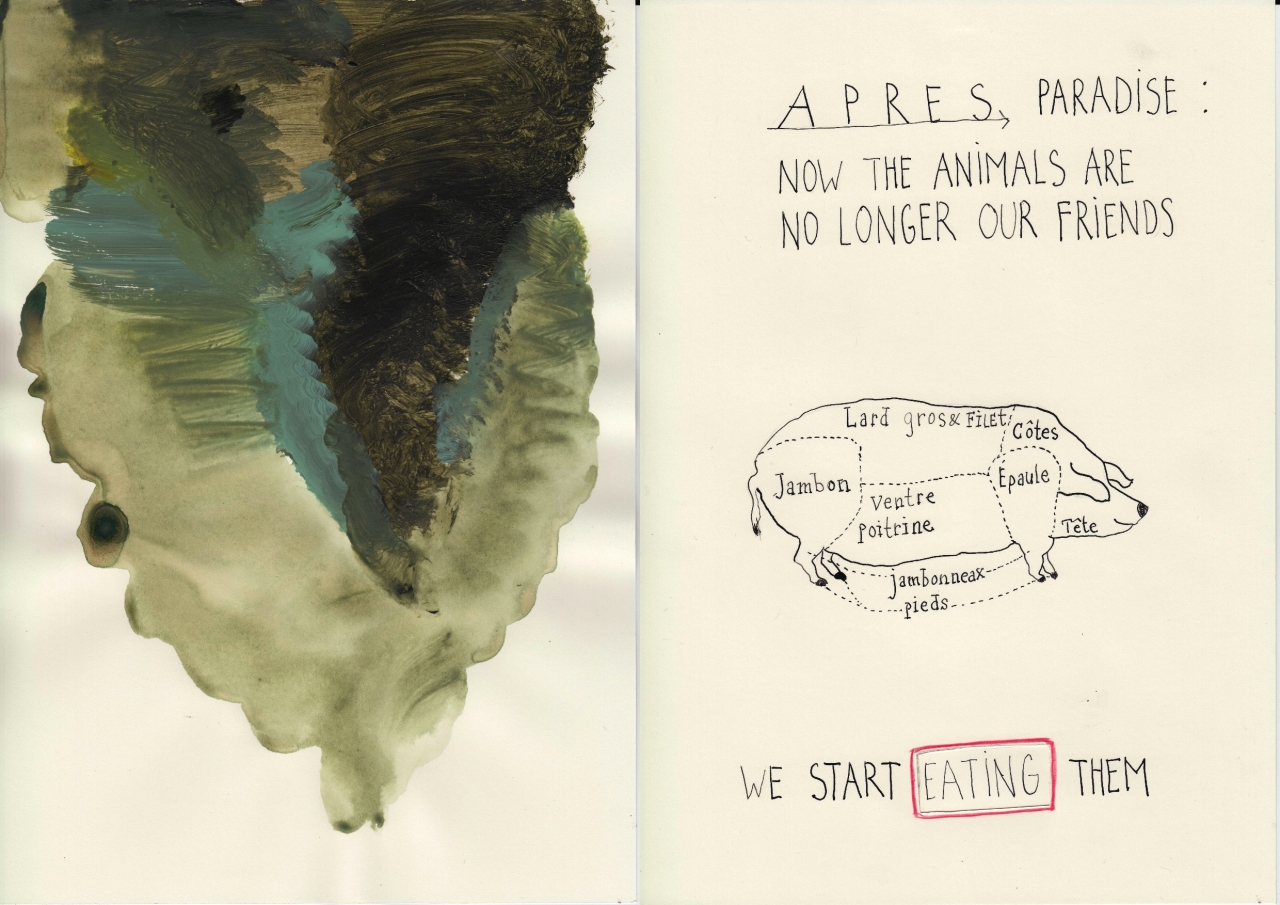 APRES, PARADISE :
NOW THE ANIMALS ARE
NO LONGER OUR FRIENDS
Lard gros & FILET
Côtes
Jambon
Epaule
Ventre
poitrine
Tête
jambonneax
pieds
WE START EATING THEM